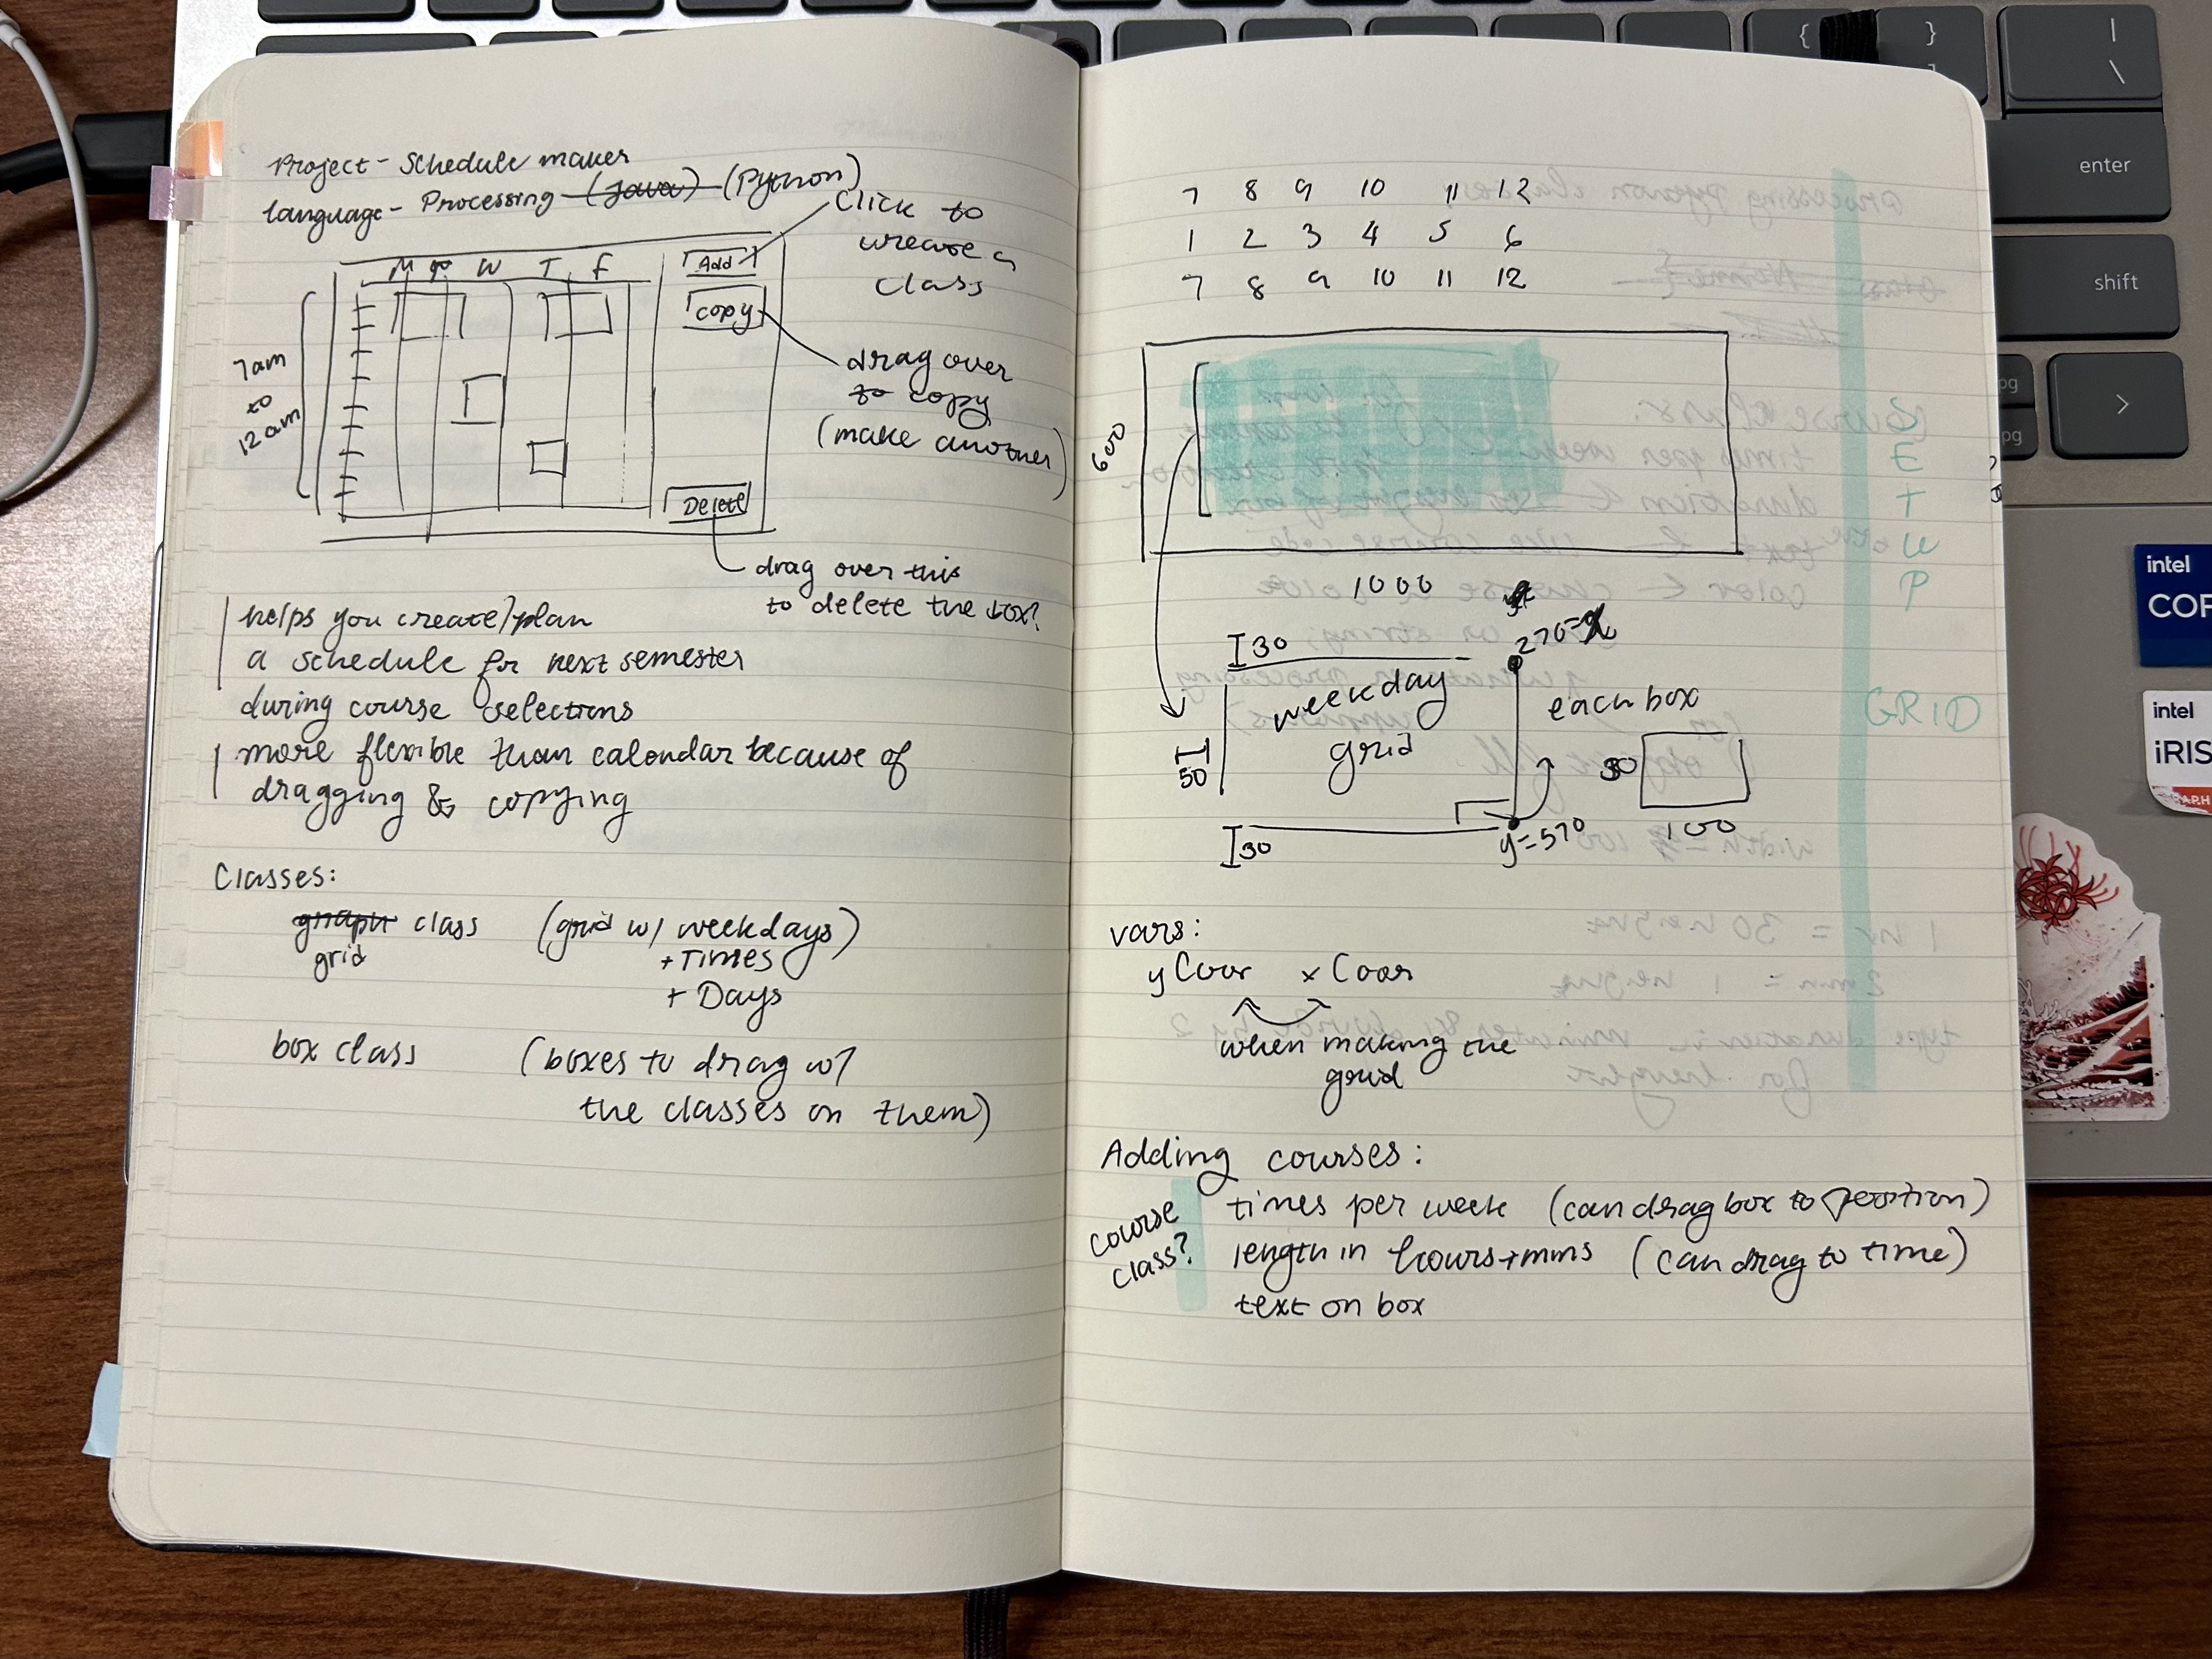 Project - Schedule maker
language - Processing (Java) (Python)
M T W T F
Add +
copy
Delete
7am
to
12am
click to
create a
class
drag over
to copy
(make another)
drag over this
to delete the box?
helps you create/plan
a schedule for next semester
during course selections
more flexible than calendar because of
dragging & copying
Classes:
graph class (grid w/ weekdays)
grid + Times
+ Days
box class (boxes to drag w/
the classes on them)
7 8 9 10 11 12
1 2 3 4 5 6
7 8 9 10 11 12
600
1000
30
weekday
grid
50
30
y=570
each box
30
100
vars:
yCoor xCoor
when making the
grid
Adding courses:
course
class?
times per week (can drag box to position)
length in hours + mins (can drag to time)
text on box
S
E
T
U
P
GRID
{
}
|
\
enter
shift
pg
pg
>
intel
intel
iRIS